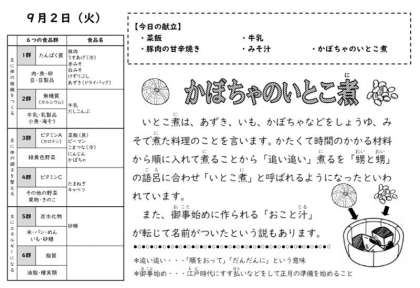 ９月２日（火）
６つの食品群
食品名
１群
たんぱく質
肉・魚・卵
豆・豆製品
豚肉
うすあげ（冷）
赤みそ
白みそ
けずりぶし
あずき（ドライパック）
２群
無機質
（カルシウム）
牛乳・乳製品
小魚・海そう
牛乳
だしこんぶ
３群
ビタミンA
（カロテン）
緑黄色野菜
菜飯（具）
ピーマン
こまつな（冷）
にんじん
かぼちゃ
４群
ビタミンC
その他の野菜
果物・きのこ
たまねぎ
キャベツ
５群
炭水化物
米・パン・めん
いも・砂糖
砂糖
６群
脂質
油脂・種実類
【今日の献立】
・菜飯
・牛乳
・豚肉の甘辛焼き
・みそ汁
・かぼちゃのいとこ煮
かぼちゃのいとこ煮
いとこ煮は、あずき、いも、かぼちゃなどをしょうゆ、み
そで煮た料理のことを言います。かたくて時間のかかる材料
から順に入れて煮ることから「追い追い」煮るを「甥と甥」
の語呂に合わせ「いとこ煮」と呼ばれるようになったといわ
れています。
また、御事始めに作られる「おこと汁」
が転じて名前がついたという説もあります。
＊追い追い・・・「順をおって」「だんだんに」という意味
＊御事始め・・・江戸時代にすす払いなどをして正月の準備を始めること